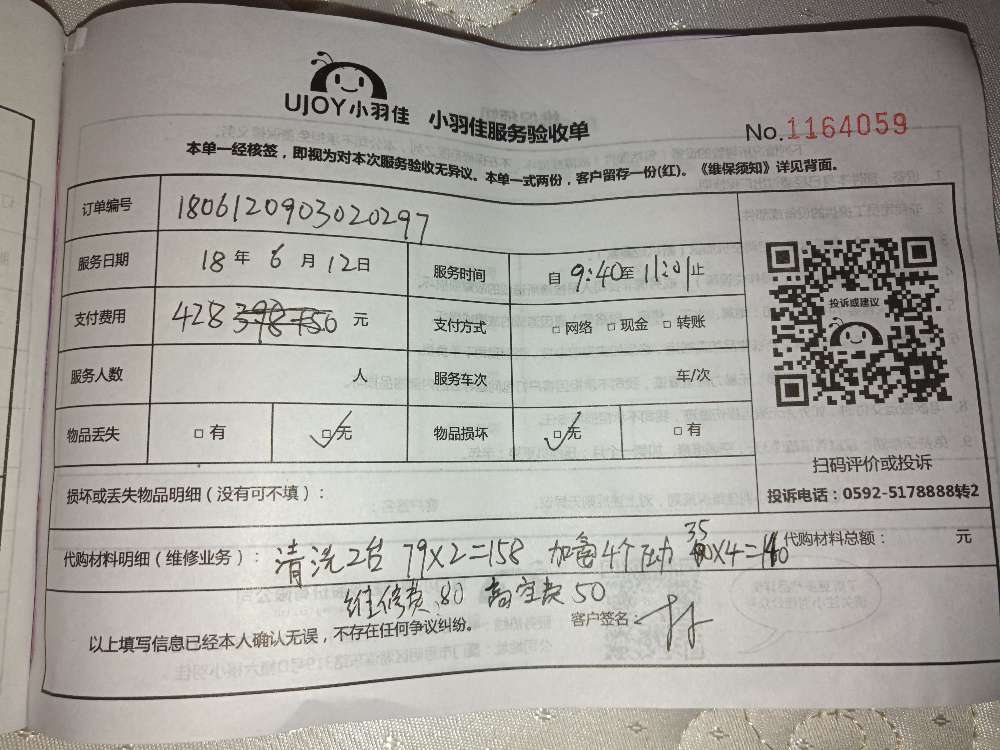 UJOY小羽佳 小羽佳服务验收单
No.1164059
本单一经核签，即视为对本次服务验收无异议。本单一式两份，客户留存一份(红)。《维保须知》详见背面。
订单编号 1806120903020297
服务日期 18年6月12日 服务时间 自9:40至11:01止
支付费用 428 元 支付方式 □网络 □现金 □转账
投诉或建议
服务人数 人 服务车次 车/次
物品丢失 □有 □无 物品损坏 □无 □有
扫码评价或投诉
投诉电话：0592-5178888转2
损坏或丢失物品明细（没有可不填）：
代购材料明细（维修业务）：清洗2台 79X2=158 加氟4个压力 35X4=140 代购材料总额： 元
维修费80 高空费50
以上填写信息已经本人确认无误，不存在任何争议纠纷。 客户签名：